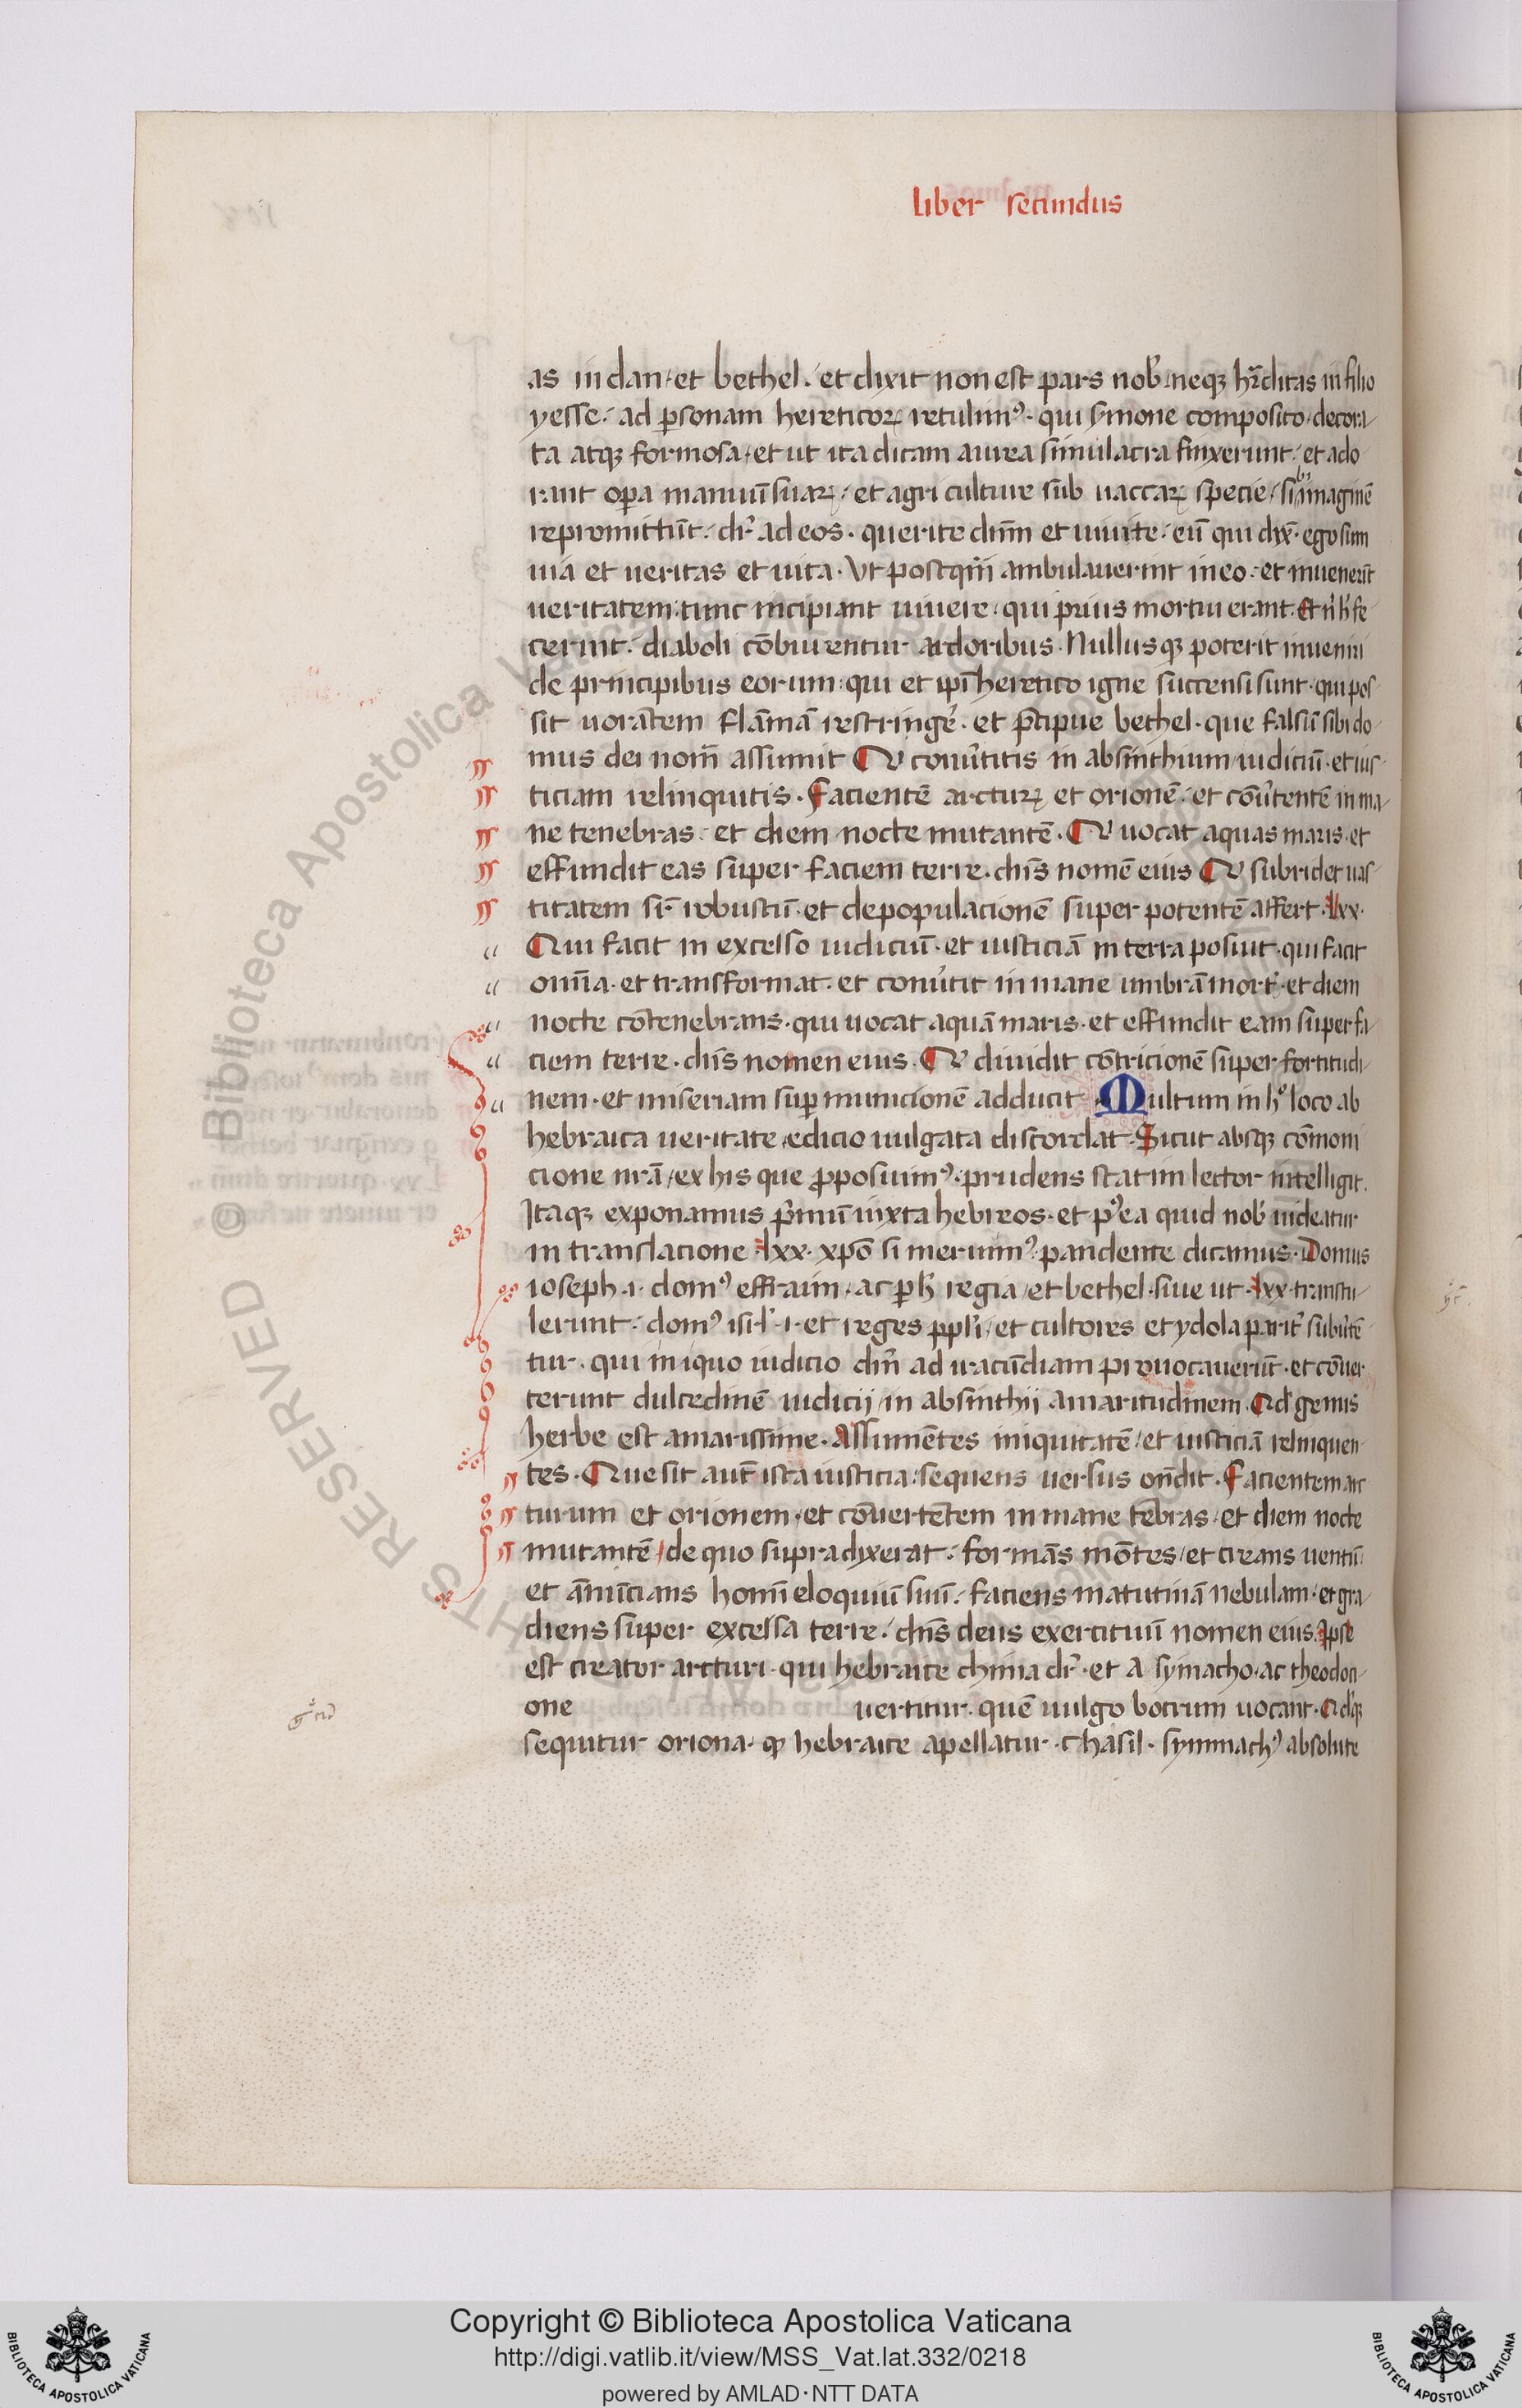 liber secundus
as in dan et bethel. et dixit non est pars nob̄. neqꝫ hr̄ditas in filio
yesse. ad ꝑsonam hereticoꝝ retulimꝰ. qui symone composito. decora
ta atqꝫ formosa. et ut ita dicam aurea simulacra finxerunt. et ado
rant oꝑa manuū suaꝝ. et agri culture sub uaccaꝝ specie / imaginē
repromittūt. dr̄ ad eos. querite dnm̄ et uiuite. eū qui dix̄. ego sum
uia et ueritas et uita. Vt postqm̄ ambulauerint in eo. et inuenerīt
ueritatem. tunc incipiant uiuere. qui prius mortui erant. Et n̄ h̄ fe
cerint. diaboli cōburentur ardoribus. Nullusqꝫ poterit inueniri
de principibus eorum. qui et ip̄i heretico igne succensi sunt. qui pos
sit uorātem flāmā restringe᷑. et p̄cipue bethel. que falsū sibi do
mus dei nom̄ assumit Qui conūtitis in absinthium iudiciū. et ius
ticiam relinquitis. Facientē arcturꝫ et orionē. et cōūtentē in ma
ne tenebras. et diem nocte mutantē. Qui uocat aquas maris. et
effundit eas super faciem terre. dn̄s nomē eius Qui subridet uas
titatem sr̄ robustū. et depopulacionē super potentē affert. lxx.
Qui facit in excelso iudiciū. et iusticiā in terra posuit. qui facit
omīa. et transformat. et conūtit in mane umbrā mort̄. et diem
nocte cōtenebrans. qui uocat aquā maris. et effundit eam super fa
ciem terre. dn̄s nomen eius. Qui diuidit cōtricionē super fortitudi
nem. et miseriam suꝑ municionē adducit. Multum in hͦ loco ab
hebraica ueritate. edicio uulgata discordat. Sicut absqꝫ cōmoni
cione nr̄a / ex his que ꝓposuimꝰ. prudens statim lector intelligit.
Itaqꝫ exponamus p̄mū iuxta hebreos. et pꝰea quid nob̄ uideatur
in translacione lxx. xp̄o si meruimꝰ. pandente dicamus. Domus
ioseph .i. domꝰ effraim. ac ꝑ h̄ regia / et bethel. siue ut .lxx. transtu
lerunt. domꝰ isrl̄ .i. et reges ppl̄i / et cultores et ydola parit̄ subūtē
tur. qui iniquo iudicio dm̄ ad iracūdiam prouocauerūt. et cōuer
terunt dulcedinē iudicij / in absinthij amaritudinem. Qd̄ genus
herbe est amarissime. Assumētes iniquitatē / et iusticiā relinquen
tes. Que sit aut̄ ista iusticia. sequens uersus oñdit. Facientem arc
turum et orionem. et cōuertētem in mane teb̄ras. et diem nocte
mutantē / de quo supra dixerat. formās mōtes / et creans uentū.
et ānūcians homī eloquiū suū. faciens matutinā nebulam. et gra
diens super excelsa terre. dn̄s deus exercituū nomen eius. Ipse
est creator arcturi. qui hebraice chima dr̄. et a symacho. ac theodoci
one vertitur. quē uulgo bootum uocant. Qd̄qꝫ
sequitur oriona. qͥ hebraice apellatur. Chasil. symmachꝰ absolute
Copyright © Biblioteca Apostolica Vaticana
http://digi.vatlib.it/view/MSS_Vat.lat.332/0218
powered by AMLAD·NTT DATA